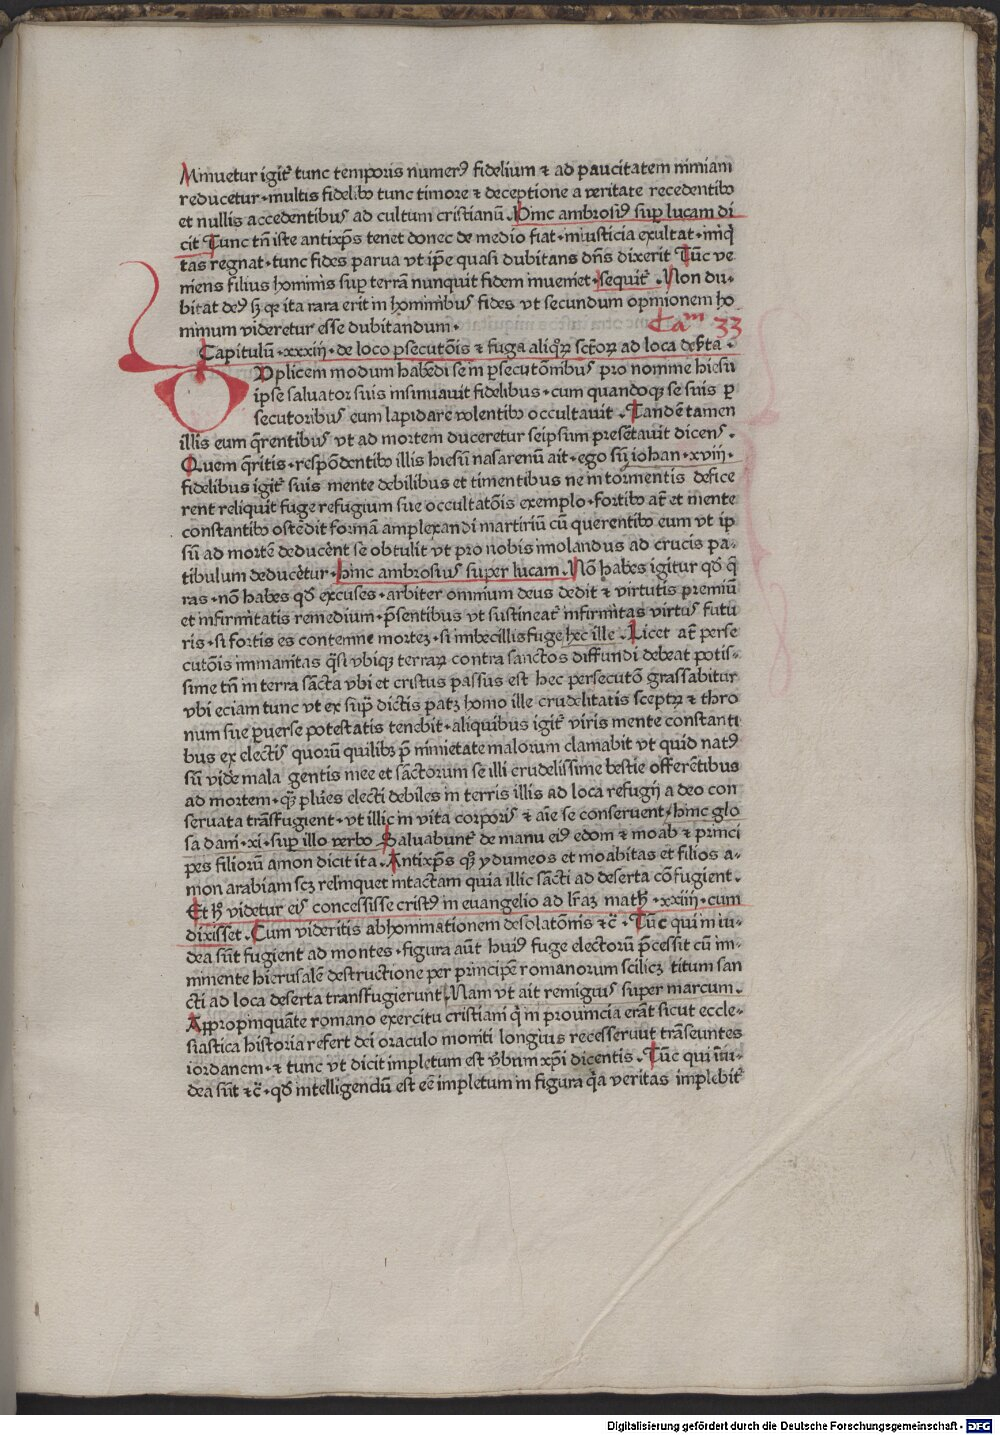 Minuetur igit᷑ tunc temporis numerꝰ fidelium ⁊ ad paucitatem nimiam
reducetur·multis fidelibꝰ tunc timore ⁊ deceptione a veritate recedentibꝰ
et nullis accedentibus ad cultum cristianū. Hinc ambrosiꝰ suꝑ lucam di
cit Tunc tn̄ iste antixp̄s tenet donec de medio fiat·iniusticia exultat·iniq̇
tas regnat·tunc fides parua vt ip̄e quasi dubitans dn̄s dixerit Tūc ve
niens filius hominis suꝑ terrā nunquit fidem inueniet·sequit᷑. Non du-
bitat deꝰ sꝫ ꝙ ita rara erit in hominibus fides vt secundum opinionem ho
minum videretur esse dubitandum·
Caᵐ 33
Capitulū·xxxiii·de loco ꝑsecutōis ⁊ fuga aliq̊ꝝ sct̄oꝝ ad loca deẜta·
Duplicem modum habēdi se in ꝑsecutōnibus pro nomine hiesu
ipse saluator suis insinuauit fidelibus·cum quandoqꝫ se suis ꝑ
secutoribus eum lapidare volentibꝰ occultauit. Tandē tamen
illis eum q̄rentibus vt ad mortem duceretur seipsum presētauit dicens·
Quem q̄ritis·respōdentibꝰ illis hiesū nasarenū ait·ego sū iohan·xviii·
fidelibus igit᷑ suis mente debilibus et timentibus ne in tormentis defice
rent reliquit fuge refugium sue occultatōis exemplo·fortibꝰ at̄ et mente
constantibꝰ ostēdit formā amplexandi martiriū cū querentibꝰ eum vt ip
sū ad mortē deducēnt se obtulit vt pro nobis imolandus ad crucis pa-
tibulum deducētur·Hinc ambrosius super lucam. Nō habes igitur qd̄ q̄
ras·nō habes qd̄ excuses·arbiter omnium deus dedit ⁊ virtutis premiū
et infirmitatis remedium·p̄sentibus vt sustineat᷑ infirmitas virtus futu
ris·si fortis es contemne morteꝫ·si imbecillis fuge hec ille. Licet at̄ perse
cutōis immanitas q̄si vbiqꝫ terraꝝ contra sanctos diffundi debeat potis-
sime tn̄ in terra sācta vbi et cristus passus est hec persecutō grassabitur
vbi eciam tunc vt ex sup̄ dictis patꝫ homo ille crudelitatis sceptꝝ ⁊ thro
num sue ꝑuerse potestatis tenebit·aliquibus igit᷑ viris mente constanti
bus ex electis quorū quilibꝫ p̄ nimietate malorum clamabit vt quid natꝰ
sū vide mala gentis mee et sāctorum se illi crudelissime bestie offerētibus
ad mortem·qꝫ plūes electi debiles in terris illis ad loca refugij a deo con
seruata trāsfugient·vt illic in vita corporis ⁊ aīe se conseruent·hinc glo
sa dani·xi·suꝑ illo verbo Saluabunt᷑ de manu eiꝰ edom ⁊ moab ⁊ princi
pes filiorū amon dicit ita. Antixp̄s qꝫ ydumeos et moabitas et filios a-
mon arabiam scꝫ relinquet intactam quia illic sācti ad deserta cōfugient·
Et hͦ videtur eis concessisse cristꝰ in euangelio ad lr̄aꝫ math·xxiiii·cum
dixisset. Cum videritis abhominationem desolatōnis ⁊c̄·Tūc qui in iu-
dea sūt fugient ad montes·figura aūt huiꝰ fuge electorū p̄cessit cū im-
minente hierusalē destructione per principē romanorum scilicꝫ titum san
cti ad loca deserta transfugierunt. Nam vt ait remigius super marcum·
Appropinquāte romano exercitu cristiani q̇ in prouincia erāt sicut eccle-
siastica historia refert dei oraculo moniti longius recesserunt trāseuntes
iordanem·⁊ tunc vt dicit impletum est v̄bum xp̄i dicentis·Tūc qui in iu-
dea sūt ⁊c̄·qd̄ intelligendū est eē impletum in figura q̇a veritas implebit᷑
Digitalisierung gefördert durch die Deutsche Forschungsgemeinschaft - DFG